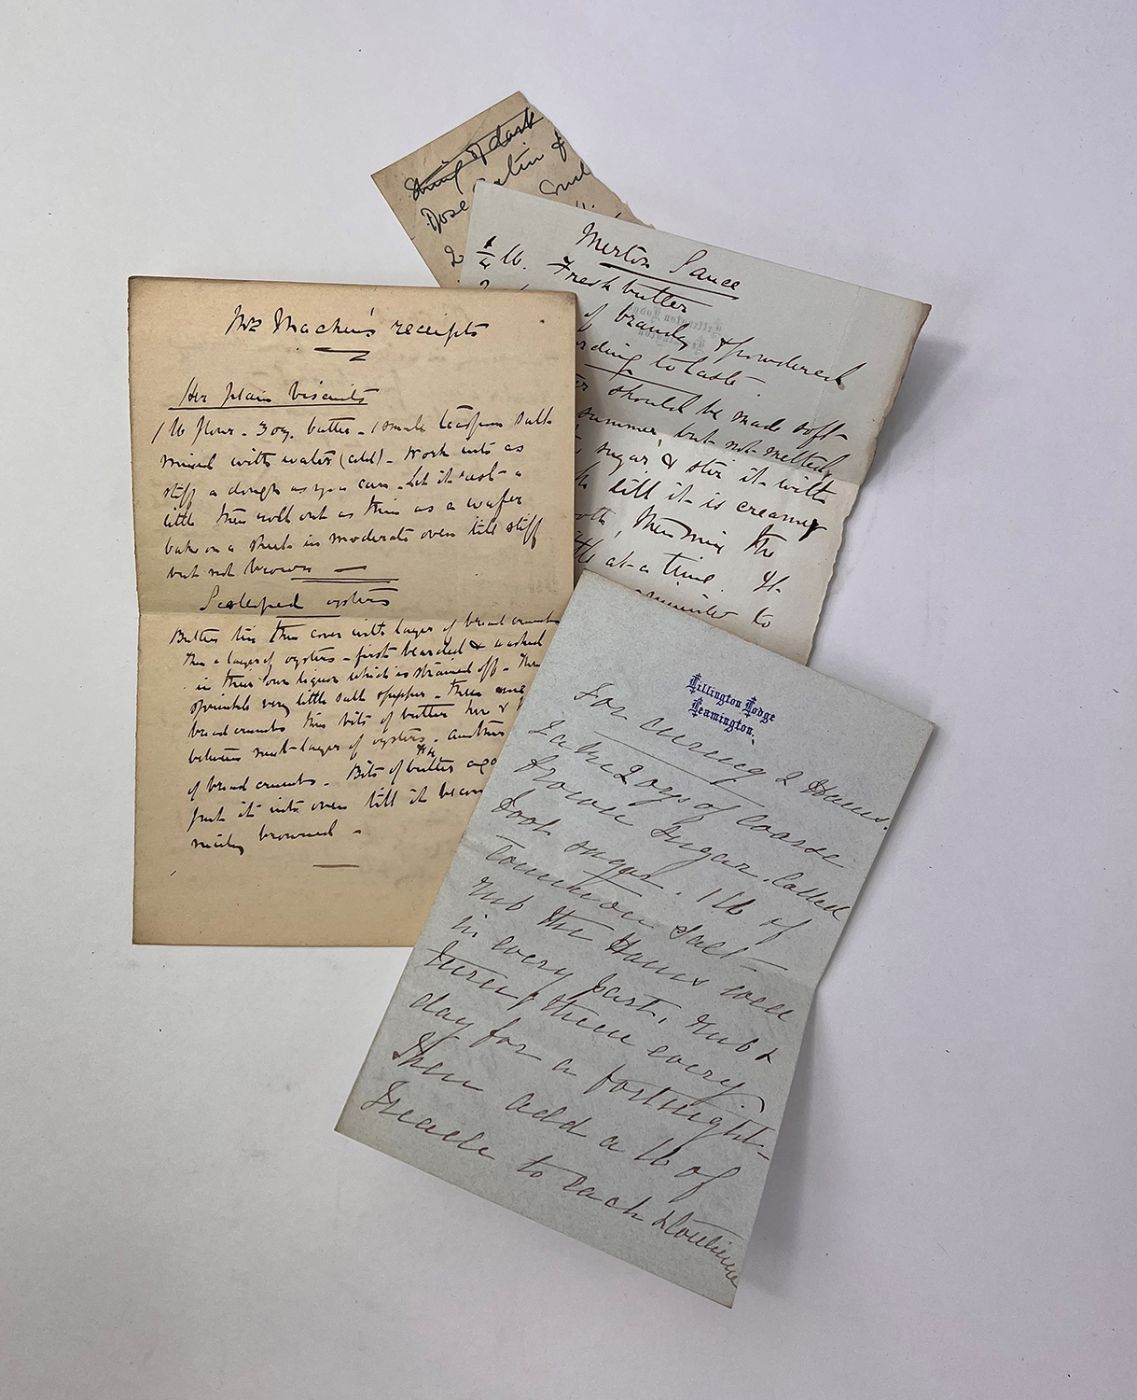 Mrs Machin's receipts
Her plain biscuits
1 lb flour - 3 oz. butter - 1 small teaspoon salt
mixed with water (cold) - work into as
stiff a dough as you can - let it rest a
little then roll out as thin as a wafer
bake on a sheet in moderate oven till stiff
but not brown
Scalloped oysters
Butter tin then cover with layer of bread crumbs
then a layer of oysters - first bearded & washed
in their own liquor which is strained off - Then
sprinkle very little salt & pepper - then more
bread crumbs then bits of butter here &
between next layer of oysters. Another
of bread crumbs - Bits of butter
put it into oven till it
nicely browned -
Dose
Merton Sauce
1/4 lb. Fresh butter
of brandy & powdered
to taste
should be made soft
summer, but not melted
sugar & stir it with
till it is creamy
then mix the
at a time. It
to
Lillington Lodge
Leamington.
For curing 2 Hams.
Take 2 ozs of coarse
brown sugar. Called
foot sugar. 1 lb of
common salt
Rub the Hams well
in every part, rub &
turn them every
day for a fortnight -
then add a lb of
treacle to each & continue